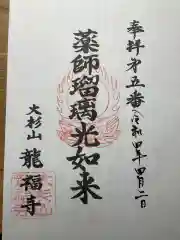 奉拝 第五番 令和四年四月二日
薬師瑠璃光如来
大杉山 龍福寺